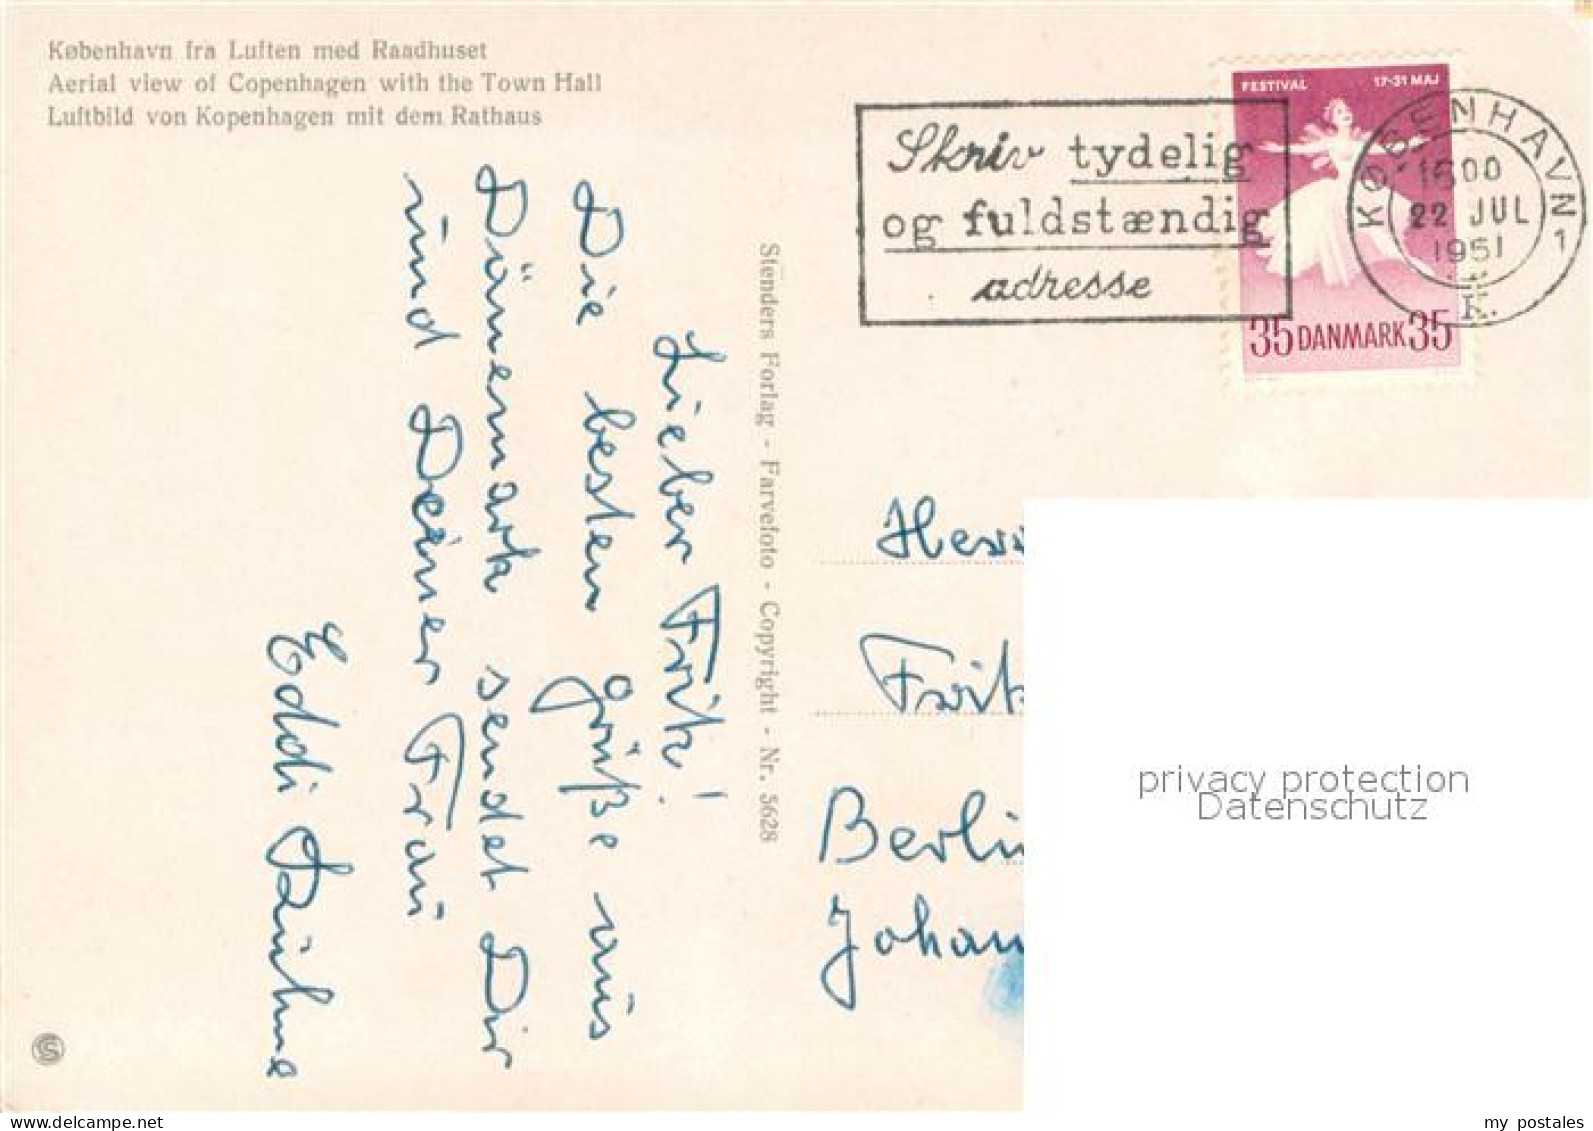 København fra Luften med Raadhuset
Aerial view of Copenhagen with the Town Hall
Luftbild von Kopenhagen mit dem Rathaus
FESTIVAL 17-31 MAJ
35 DANMARK 35
Skriv tydelig
og fuldstændig
adresse
KØBENHAVN 1
1600
22 JUL
1951
K.
Lieber Frik!
Die besten Grüße aus
Dänemark sendet Dir
und Deiner Frau
Eddi
Stenders Forlag - Farvefoto - Copyright - Nr. 5628
Herr
Frik
Berlin
Johan
privacy protection
Datenschutz
S
my postales
www.delcampe.net